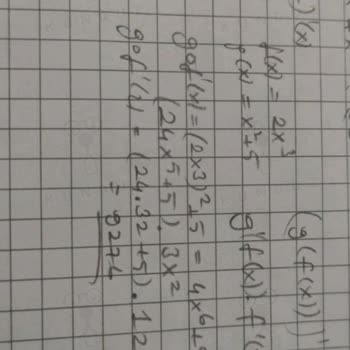 )'(x) (g(f(x)))'
f(x) = 2x³
g(x) = x²+5 g'(f(x))·f'(
gof'(x) = (2x3)²+5 = 4x⁶+
(24x⁵+5).3x²
gof'(2) = (24.32+5).12
= 9276